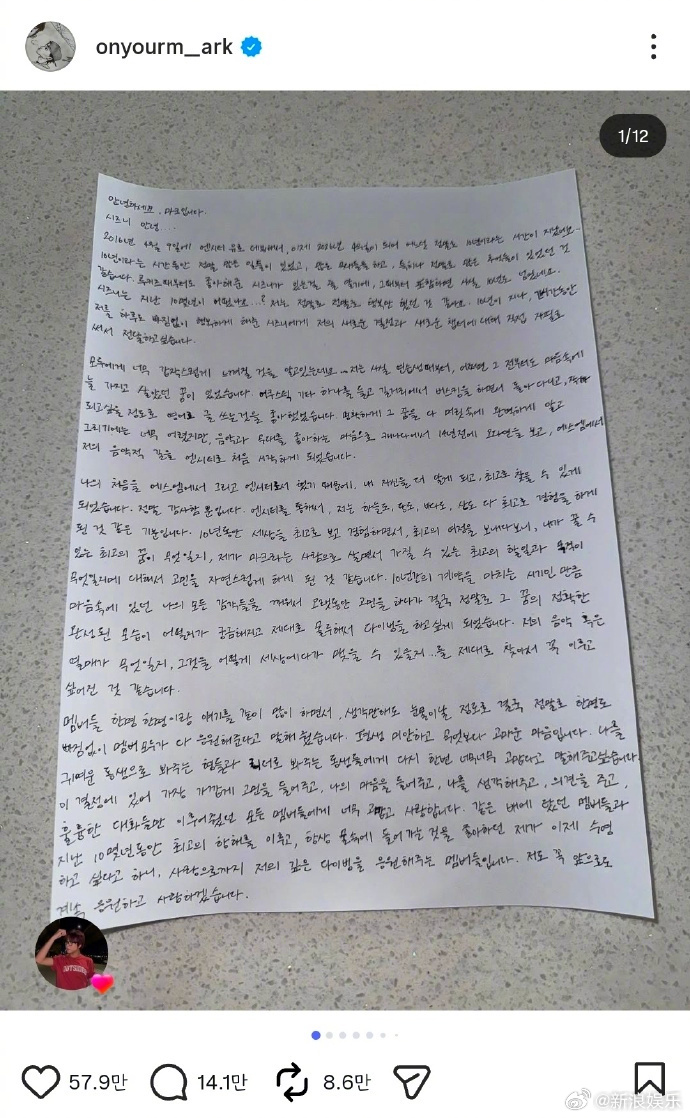 onyourm__ark
1/12
안녕하세요. 마크입니다.
시즈니 안녕...
2016년 4월 9일에 엔시티 유로 데뷔해서, 이제 2026년 4월이 되어 어느덧 정말로 10년이라는 시간이 지났네요.
10년이라는 시간동안 정말 많은 일들이 있었고, 많은 무대들을 하고, 특히나 정말로 많은 추억들이 있었던 것
같습니다. 루키즈때부터도 좋아해준 시즈니가 있는걸 잘 알기에, 그때부터 포함하면 사실 10년도 넘었네요.
시즈니는 지난 10몇년이 어땠나요...? 저는 정말로 정말로 행복만 했던 것 같아요. 10년이 지나, 그 시간동안
저를 하루도 빠짐없이 행복하게 해준 시즈니에게 저의 새로운 결정과 새로운 챕터에 대해 직접 자필로
써서 전달하고싶습니다.
모두에게 너무 갑작스럽게 느껴질 것을 알고있는데요... 저는 사실 연습생때부터, 어쩌면 그 전부터도 마음속에
늘 가지고 살았던 꿈이 있었습니다. 어쿠스틱 기타 하나를 들고 길거리에서 버스킹을 하면서 돌아다니고, 작가
되고싶을 정도로 영어로 글 쓰는것을 좋아했었습니다. 명확하게 그 꿈을 다 머릿속에 완벽하게 알고
그리기에는 너무 어렸지만, 음악과 무대를 좋아하는 마음으로 캐나다에서 14년전에 오디션을 보고, 에스엠에서
저의 음악적 길을 엔시티로 처음 시작하게 되었습니다.
나의 처음을 에스엠에서 그리고 엔시티로서 했기 때문에, 내 자신을 더 알게 되고, 최고로 찾을 수 있게
되었습니다. 정말 감사할 뿐입니다. 엔시티를 통해서, 저는 하늘도, 땅도, 바다도, 산도 다 최고로 경험을 하게
된 것 같은 기분입니다. 10년동안 세상을 최고로 보고 경험하면서, 최고의 여정을 보내다보니, 내가 꿀 수
있는 최고의 꿈이 무엇일지, 제가 마크라는 사람으로 살면서 가질 수 있는 최고의 할일과 목적이
무엇일지에 대해서 고민을 자연스럽게 하게 된 것 같습니다. 10년간의 계약을 마치는 시기인 만큼
마음속에 있던 나의 모든 감각들을 깨워서 오랫동안 고민을 하다가 결국 정말로 그 꿈의 정확한
완성된 모습이 어떨지가 궁금해지고 제대로 몰두해서 다이빙을 하고싶게 되었습니다. 저의 음악 혹은
열매가 무엇일지, 그것을 어떻게 세상에다가 맺을 수 있을지..를 제대로 찾아서 꼭 이루고
싶어진 것 같습니다.
멤버들 한명 한명이랑 얘기를 같이 많이 하면서, 생각만해도 눈물이날 정도로 결국 정말로 한명도
빠짐없이 멤버 모두가 다 응원해준다고 말해줬습니다. 평생 미안하고 무엇보다 고마운 마음입니다. 나를
귀여운 동생으로 봐주는 형들과 리더로 봐주는 동생들에게 다시 한번 너무너무 고맙다고 말해주고싶습니다.
이 결정에 있어 가장 가깝게 고민을 들어주고, 나의 마음을 들어주고, 나를 생각해주고, 의견을 주고,
훌륭한 대화들만 이루어줬던 모든 멤버들에게 너무 고맙고 사랑합니다. 같은 배에 탔던 멤버들과
지난 10몇년동안 최고의 항해를 이루고, 항상 물속에 들어가는 것을 좋아하던 제가 이제 수영
하고 싶다고 하니, 사랑으로까지 저의 깊은 다이빙을 응원해주는 멤버들입니다. 저도 꼭 앞으로도
계속 응원하고 사랑하겠습니다.
57.9만 14.1만 8.6만
@新浪娱乐